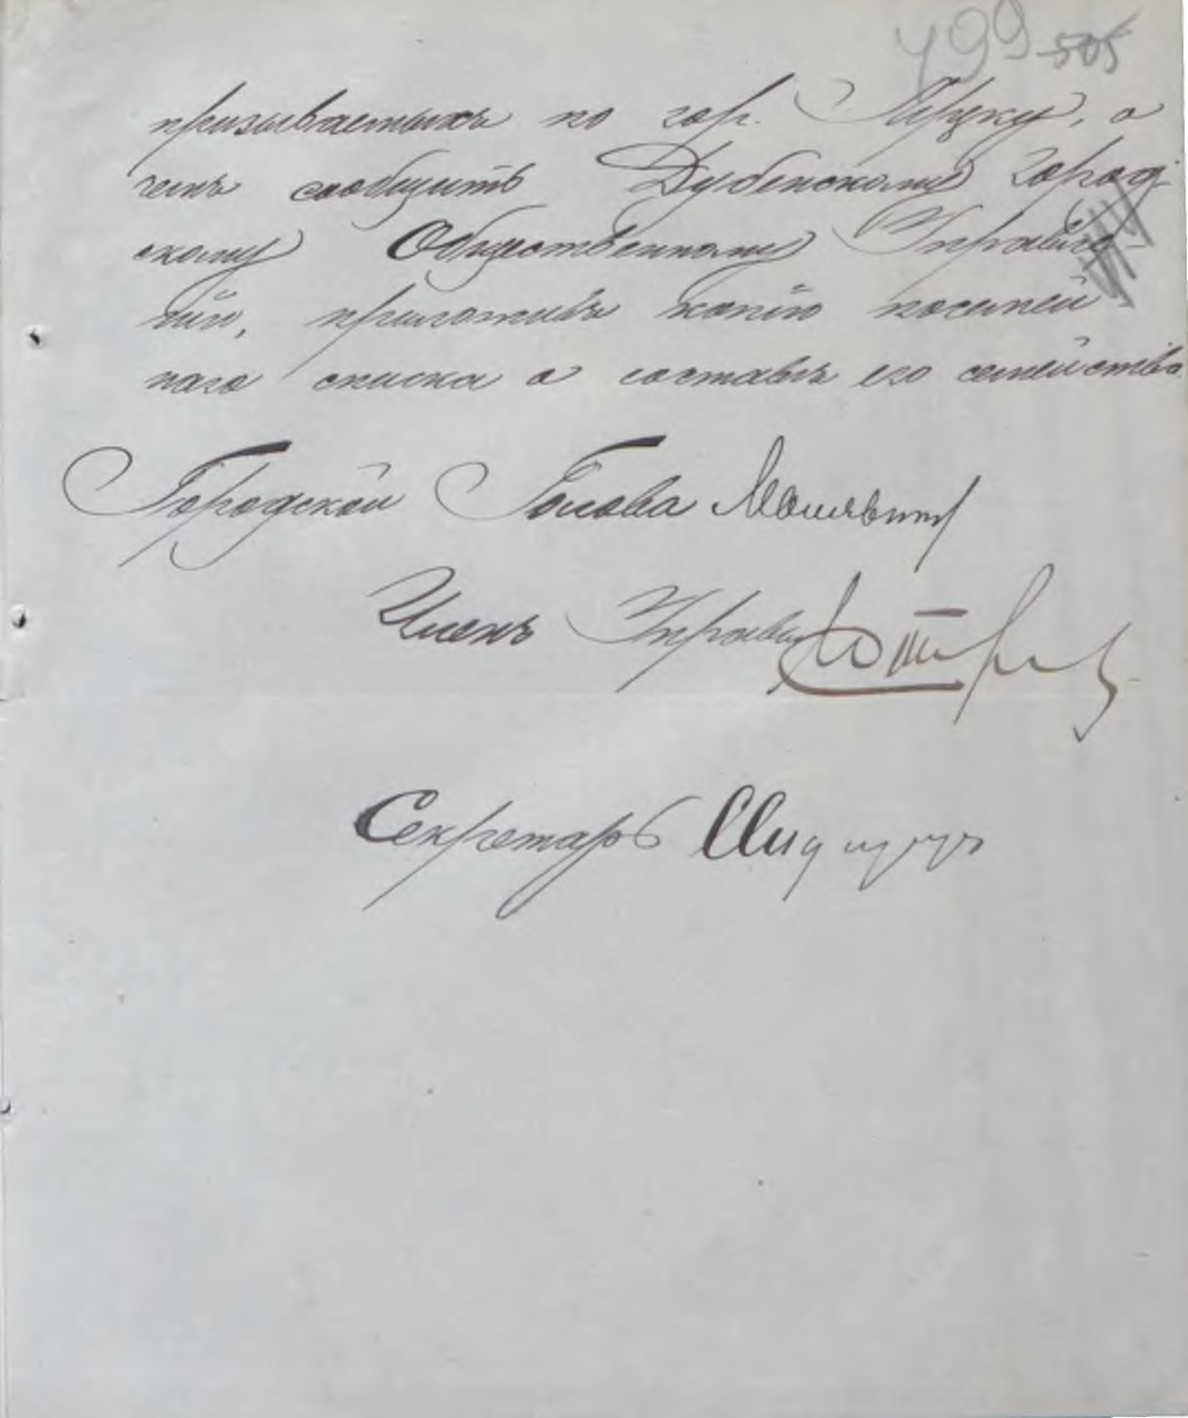 499 505
призываемыхъ по гор. Луцку, о
чемъ сообщить Дубенскому Город-
скому Общественному Управле-
нію, приложивъ копію посемей-
наго списка о составѣ его семейства.
Городской Голова
Членъ Управы
Секретарь